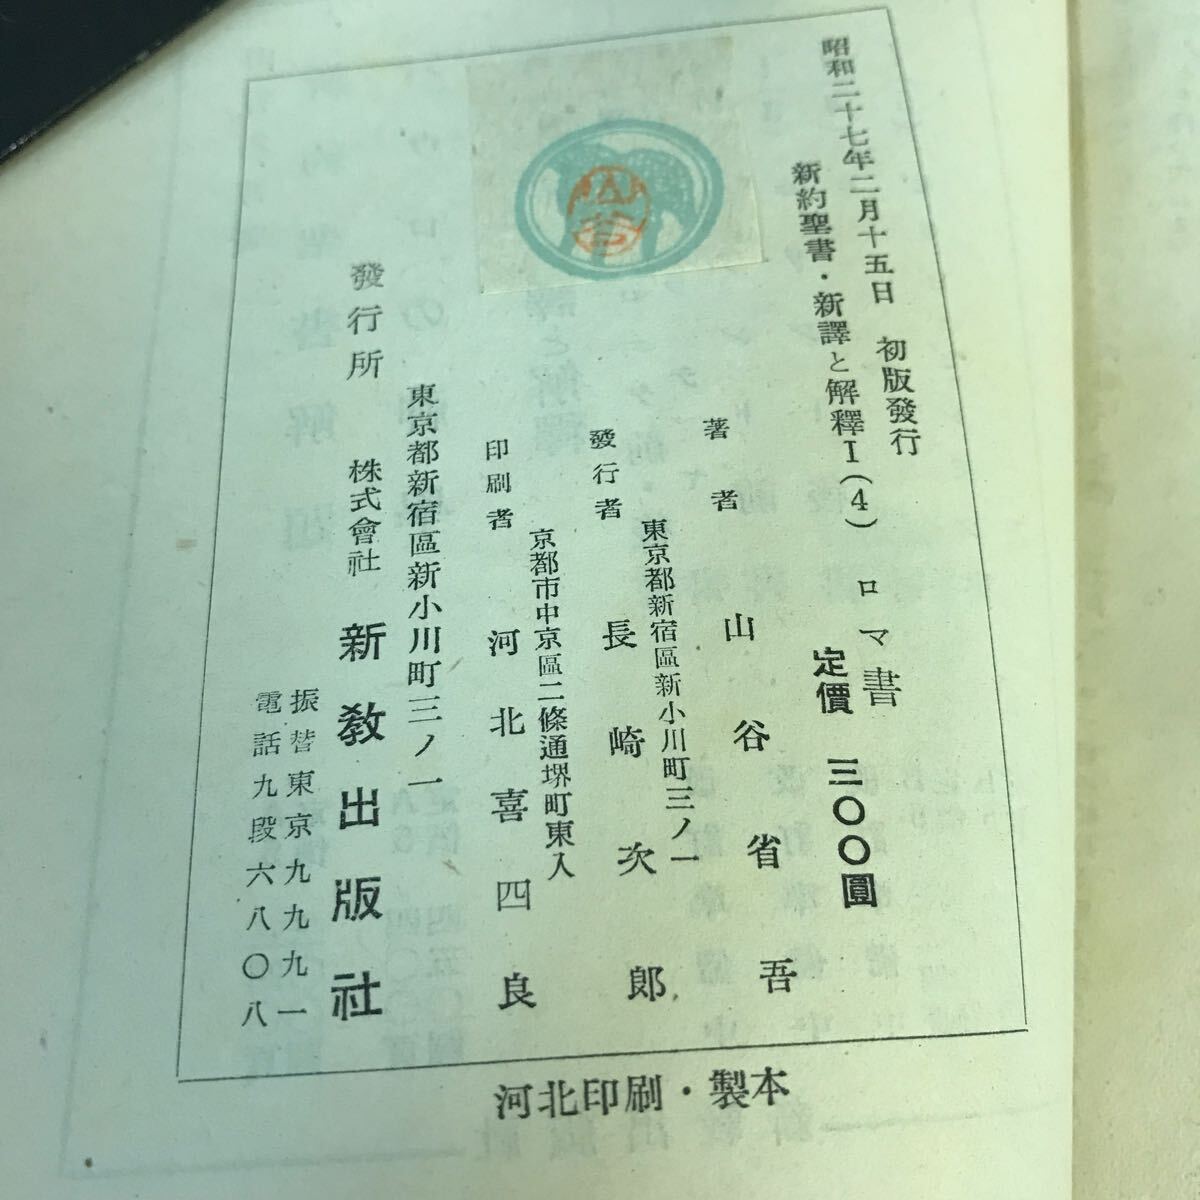 昭和二十七年二月十五日　初版發行
新約聖書・新譯と解釋Ⅰ(4)　ロマ書
定價　三〇〇圓
著者　山谷省吾
東京都新宿區新小川町三ノ一
發行者　長崎次郎
京都市中京區二條通堺町東入
印刷者　河北喜四良
東京都新宿區新小川町三ノ一
發行所　株式會社　新教出版社
振替東京九九九九一
電話九段六八〇八
河北印刷・製本